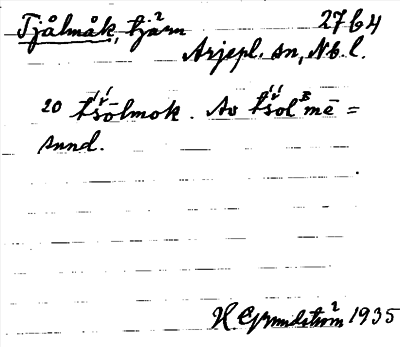 Tjålmåk, tjärn 27 b 4
Arjepl. sn, Nb. l.
20 tšo̊lmok. Av tšolᴮmē =
sund.
H Grundström 1935